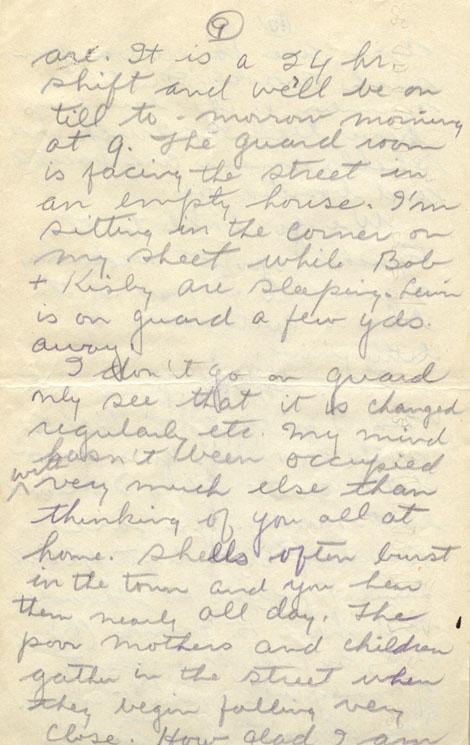 9
are. It is a 24 hr.
shift and we'll be on
till to-morrow morning
at 9. The guard room
is facing the street in
an empty house. I'm
sitting in the corner on
my sheet while Bob
+ Kisby are sleeping. Lewin
is on guard a few yds.
away.
I don't go on guard
only see that it is changed
regularly etc. My mind
hasn't been occupied
with very much else than
thinking of you all at
home. Shells often burst
in the town and you hear
them nearly all day. The
poor mothers and children
gather in the street when
they begin falling very
close. How glad I am